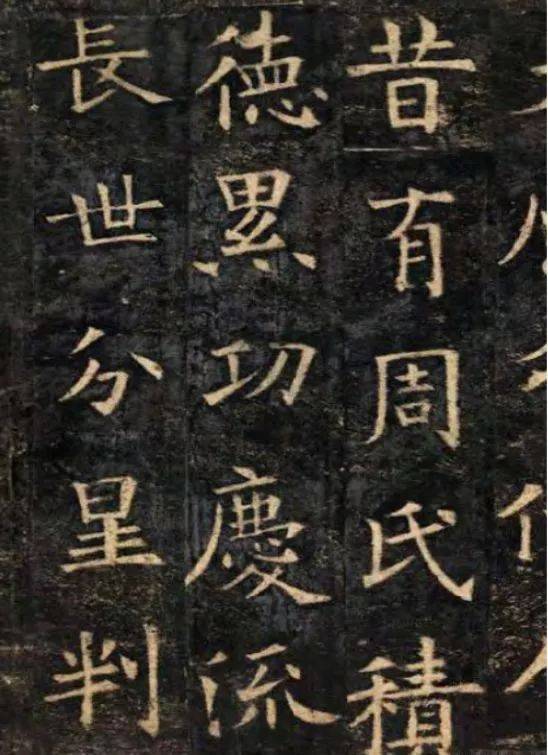 昔有周氏積
德累功慶流
長世分星判